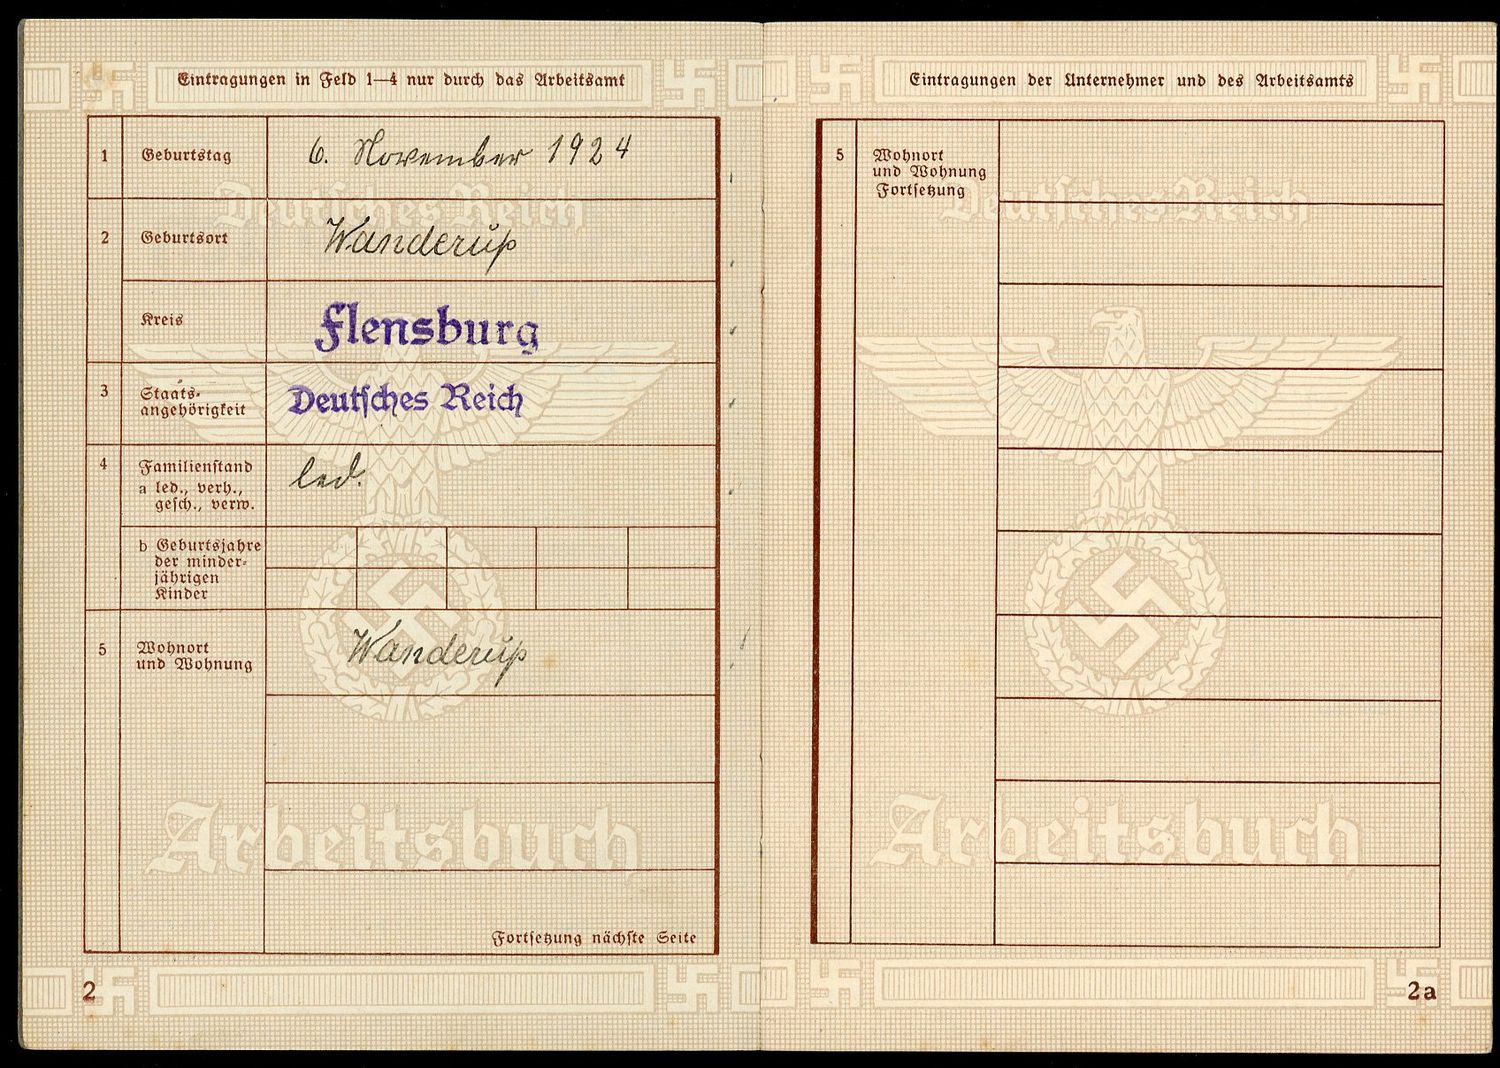 Eintragungen in Feld 1—4 nur durch das Arbeitsamt
1 Geburtstag 6. November 1924
Deutsches Reich
2 Geburtsort Wanderup
Kreis Flensburg
3 Staats-
angehörigkeit Deutsches Reich
4 Familienstand led.
a led., verh.,
gesch., verw.
b Geburtsjahre
der minder-
jährigen
Kinder
5 Wohnort
und Wohnung Wanderup
Arbeitsbuch
Fortsetzung nächste Seite
2
Eintragungen der Unternehmer und des Arbeitsamts
5 Wohnort
und Wohnung
Fortsetzung
Deutsches Reich
Arbeitsbuch
2a